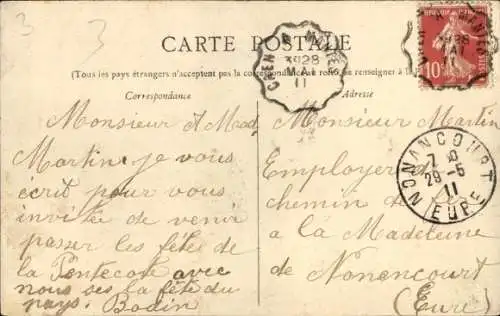 3 3
CARTE POSTALE
(Tous les pays étrangers n'acceptent pas la correspondance au recto, se renseigner à la
Correspondance
Adresse
3e28
MAI
11
10
NONANCOURT
29-5
11
EURE
Monsieur et Mad
Martin je vous
écrit pour vous
invité de venir
passer les fête de
la Pentecote avec
nous ses la fête du
pays. Bodin
Monsieur Martin
Employer de
chemin de
a là Madeleine
de Nonencourt
(Eure)